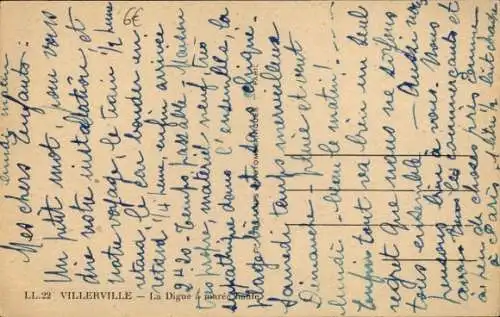 6€
lundi
Mes chers Enfants.
Un petit mot pour vous
dire notre installation et
notre voyage, le train 1/2 heure
retard, le car
retard 1/4 heure, enfin arrivée
2420. Temps passable,
très propre, matériel neuf, très
sympathique dans l'ensemble, la
plage bien et sans clique.
Samedi temps merveilleux
Dimanche - pluie et vent
lundi - beau le matin! ---
Enfin tout va bien un seul
regret que nous ne soyons
tous ensemble. - Aussi nous
pensons bien à vous. Nous
avons tous les commerçants et
à rien de choses près comme
à Paris
LL.22 VILLERVILLE - La Digue à marée haute